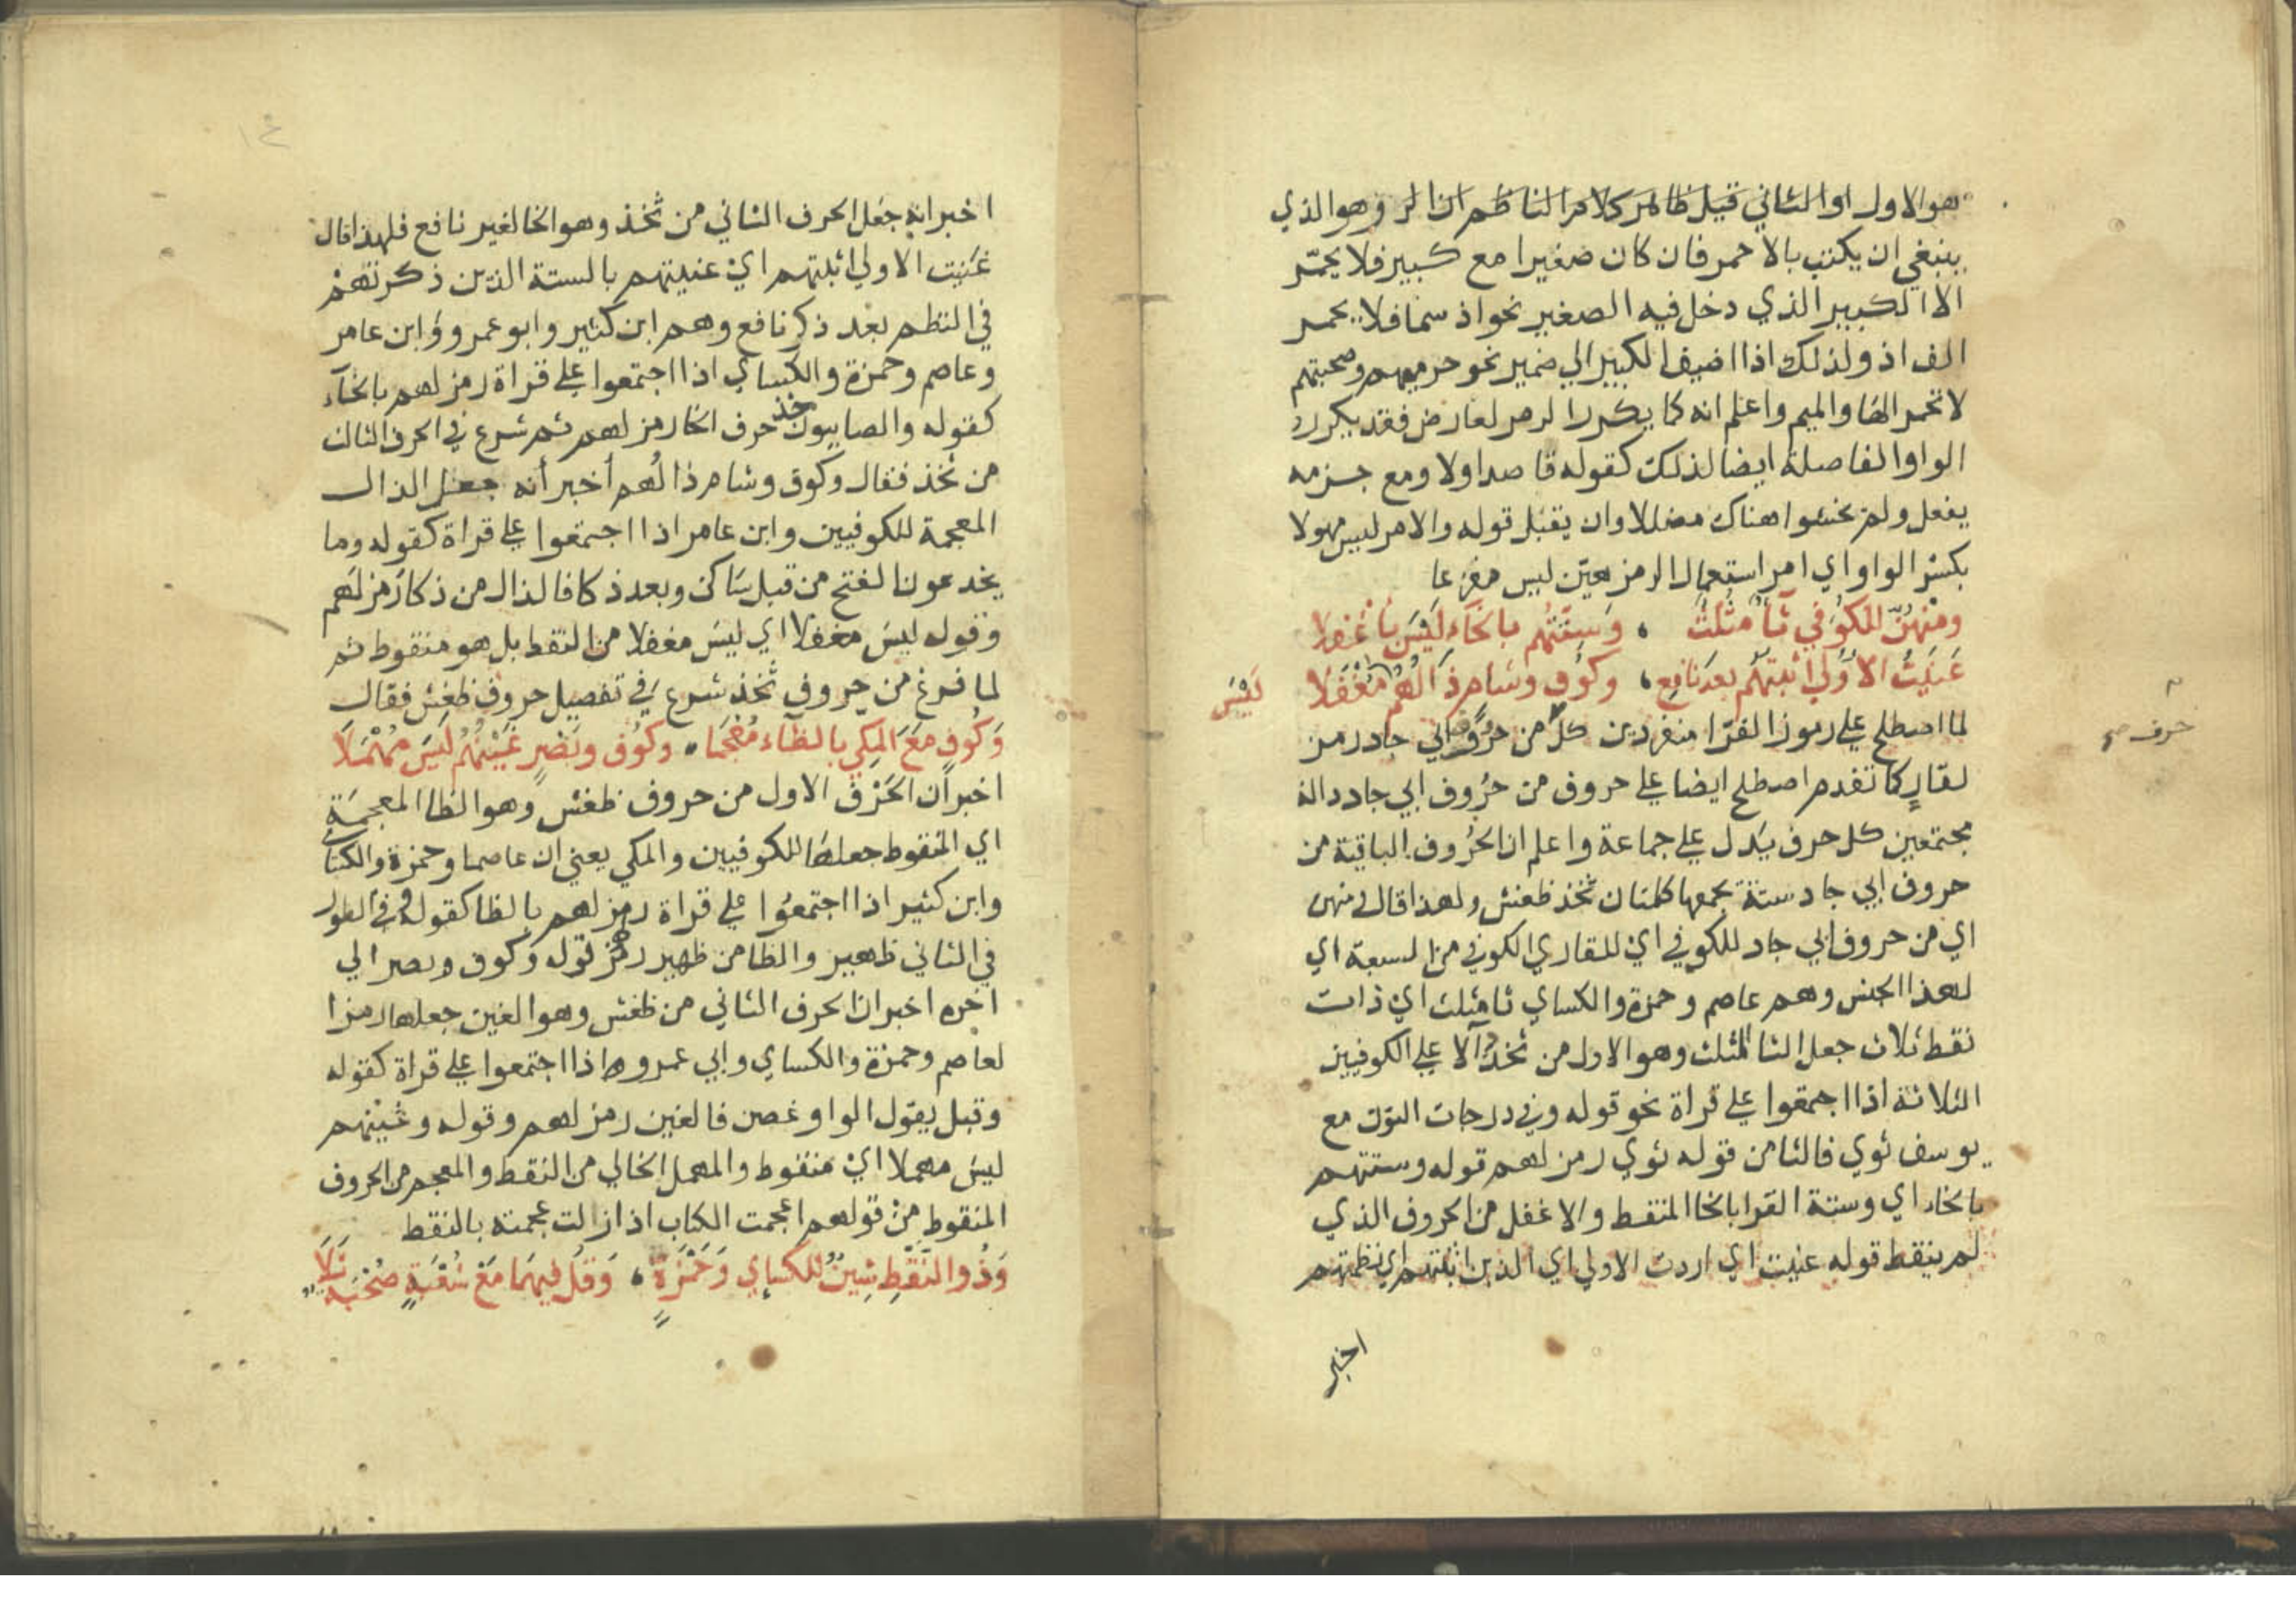 هو الاول او الثاني قيل ظاهر كلام الناظم ان الرمز هو الذي
ينبغي ان يكتب بالاحمر فان كان صغيرا مع كبير فلا يحمر
الا الكبير الذي دخل فيه الصغير نحو اذ سما فلا يحمر
الف اذ ولذلك اذا اضيف الكبير الي ضمير نحو حرميهم وصحبتهم
لا تحمر الها والميم واعلم انه كما يكرر الرمز لعارض فقد يكرر
الواو الفاصلة ايضا لذلك كقوله قاصدا ولا ومع جزمه
يفعل ولم يخشوا هناك مضللا وان يقبل قوله والامر ليس مهولا
بكسر الواو اي امر استعمال الرمز هين ليس مفزعا
ومنهن للكوفي ثاء مثلث ، وستتهم بالخاء ليس باغفلا
عنيت الاولي اثبتهم بعد نافع ، وكوف وشام ذالهم مغفلا
ليس
لما اصطلح علي رموز القرا منفردين كل من حروف ابي جاد رمز
حرف صح
لقارٍ كما تقدم اصطلح ايضا علي حروف من حروف ابي جاد دالة
مجتمعين كل حرف يدل علي جماعة واعلم ان الحروف الباقية من
حروف ابي جاد ستة يجمعها كلمتان ثخذ ظغش ولهذا قال ومنهن
اي من حروف ابي جاد للكوفي اي للقاري الكوفي من السبعة اي
لهذا الجنس وهم عاصم وحمزة والكساي ثا مثلث اي ذات
نقط ثلاث جعل الثا المثلث وهو الاول من ثخذ دالا علي الكوفيين
الثلاثة اذا اجتمعوا علي قراة نحو قوله وفي درجات النون مع
يوسف ثوي فالثا من قوله ثوي رمز لهم قوله وستتهم
بالخاء اي وستة القرا بالخا المنقط والاغفل من الحروف الذي
لم ينقط قوله عنيت اي اردت الاولي اي الذين اثبتهم اي نظمتهم
اخبر
١٤
اخبر انه جعل الحرف الثاني من ثخذ وهو الخا لغير نافع فلهذا قال
عنيت الاولي اثبتهم اي عنيتهم بالستة الذين ذكرتهم
في النظم بعد ذكر نافع وهم ابن كثير وابو عمرو وابن عامر
وعاصم وحمزة والكساي اذا اجتمعوا علي قراة رمز لهم بالخاء
كقوله والصابيون خذ حرف الخا رمز لهم ثم شرع في الحرف الثالث
من ثخذ فقال وكوف وشام ذالهم أخبر أنه جعل الذال
المعجمة للكوفيين وابن عامر اذا اجتمعوا علي قراة كقوله وما
يخدعون الفتح من قبل ساكن وبعد ذكا فالذال من ذكا رمز لهم
وقوله ليس مغفلا اي ليس مغفلا من النقط بل هو منقوط ثم
لما فرغ من حروف ثخذ شرع في تفصيل حروف ظغش فقال
وكوف مع المكي بالظاء معجما ، وكوف وبصر غينهم ليس مهملا
اخبر أن الحرف الاول من حروف ظغش وهو الظا المعجمة
اي المنقوط جعلها للكوفيين والمكي يعني ان عاصما وحمزة والكساي
وابن كثير اذا اجتمعوا علي قراة رمز لهم بالظا كقوله وفي الطور
في الثاني ظهير والظا من ظهير رمز قوله وكوف وبصر الي
اخره اخبر ان الحرف الثاني من ظغش وهو الغين جعلها رمزا
لعاصم وحمزة والكساي وابي عمرو اذا اجتمعوا علي قراة كقوله
وقبل يقول الواو غصن فالغين رمز لهم وقوله وغينهم
ليس مهملا اي منقوط والمهمل الخالي من النقط والمعجم من الحروف
المنقوط من قولهم اعجمت الكتاب اذا ازالت عجمته بالنقط
وذو النقط شين للكساي وحمزة ، وقل فيهما مع شعبة صحبة تلا